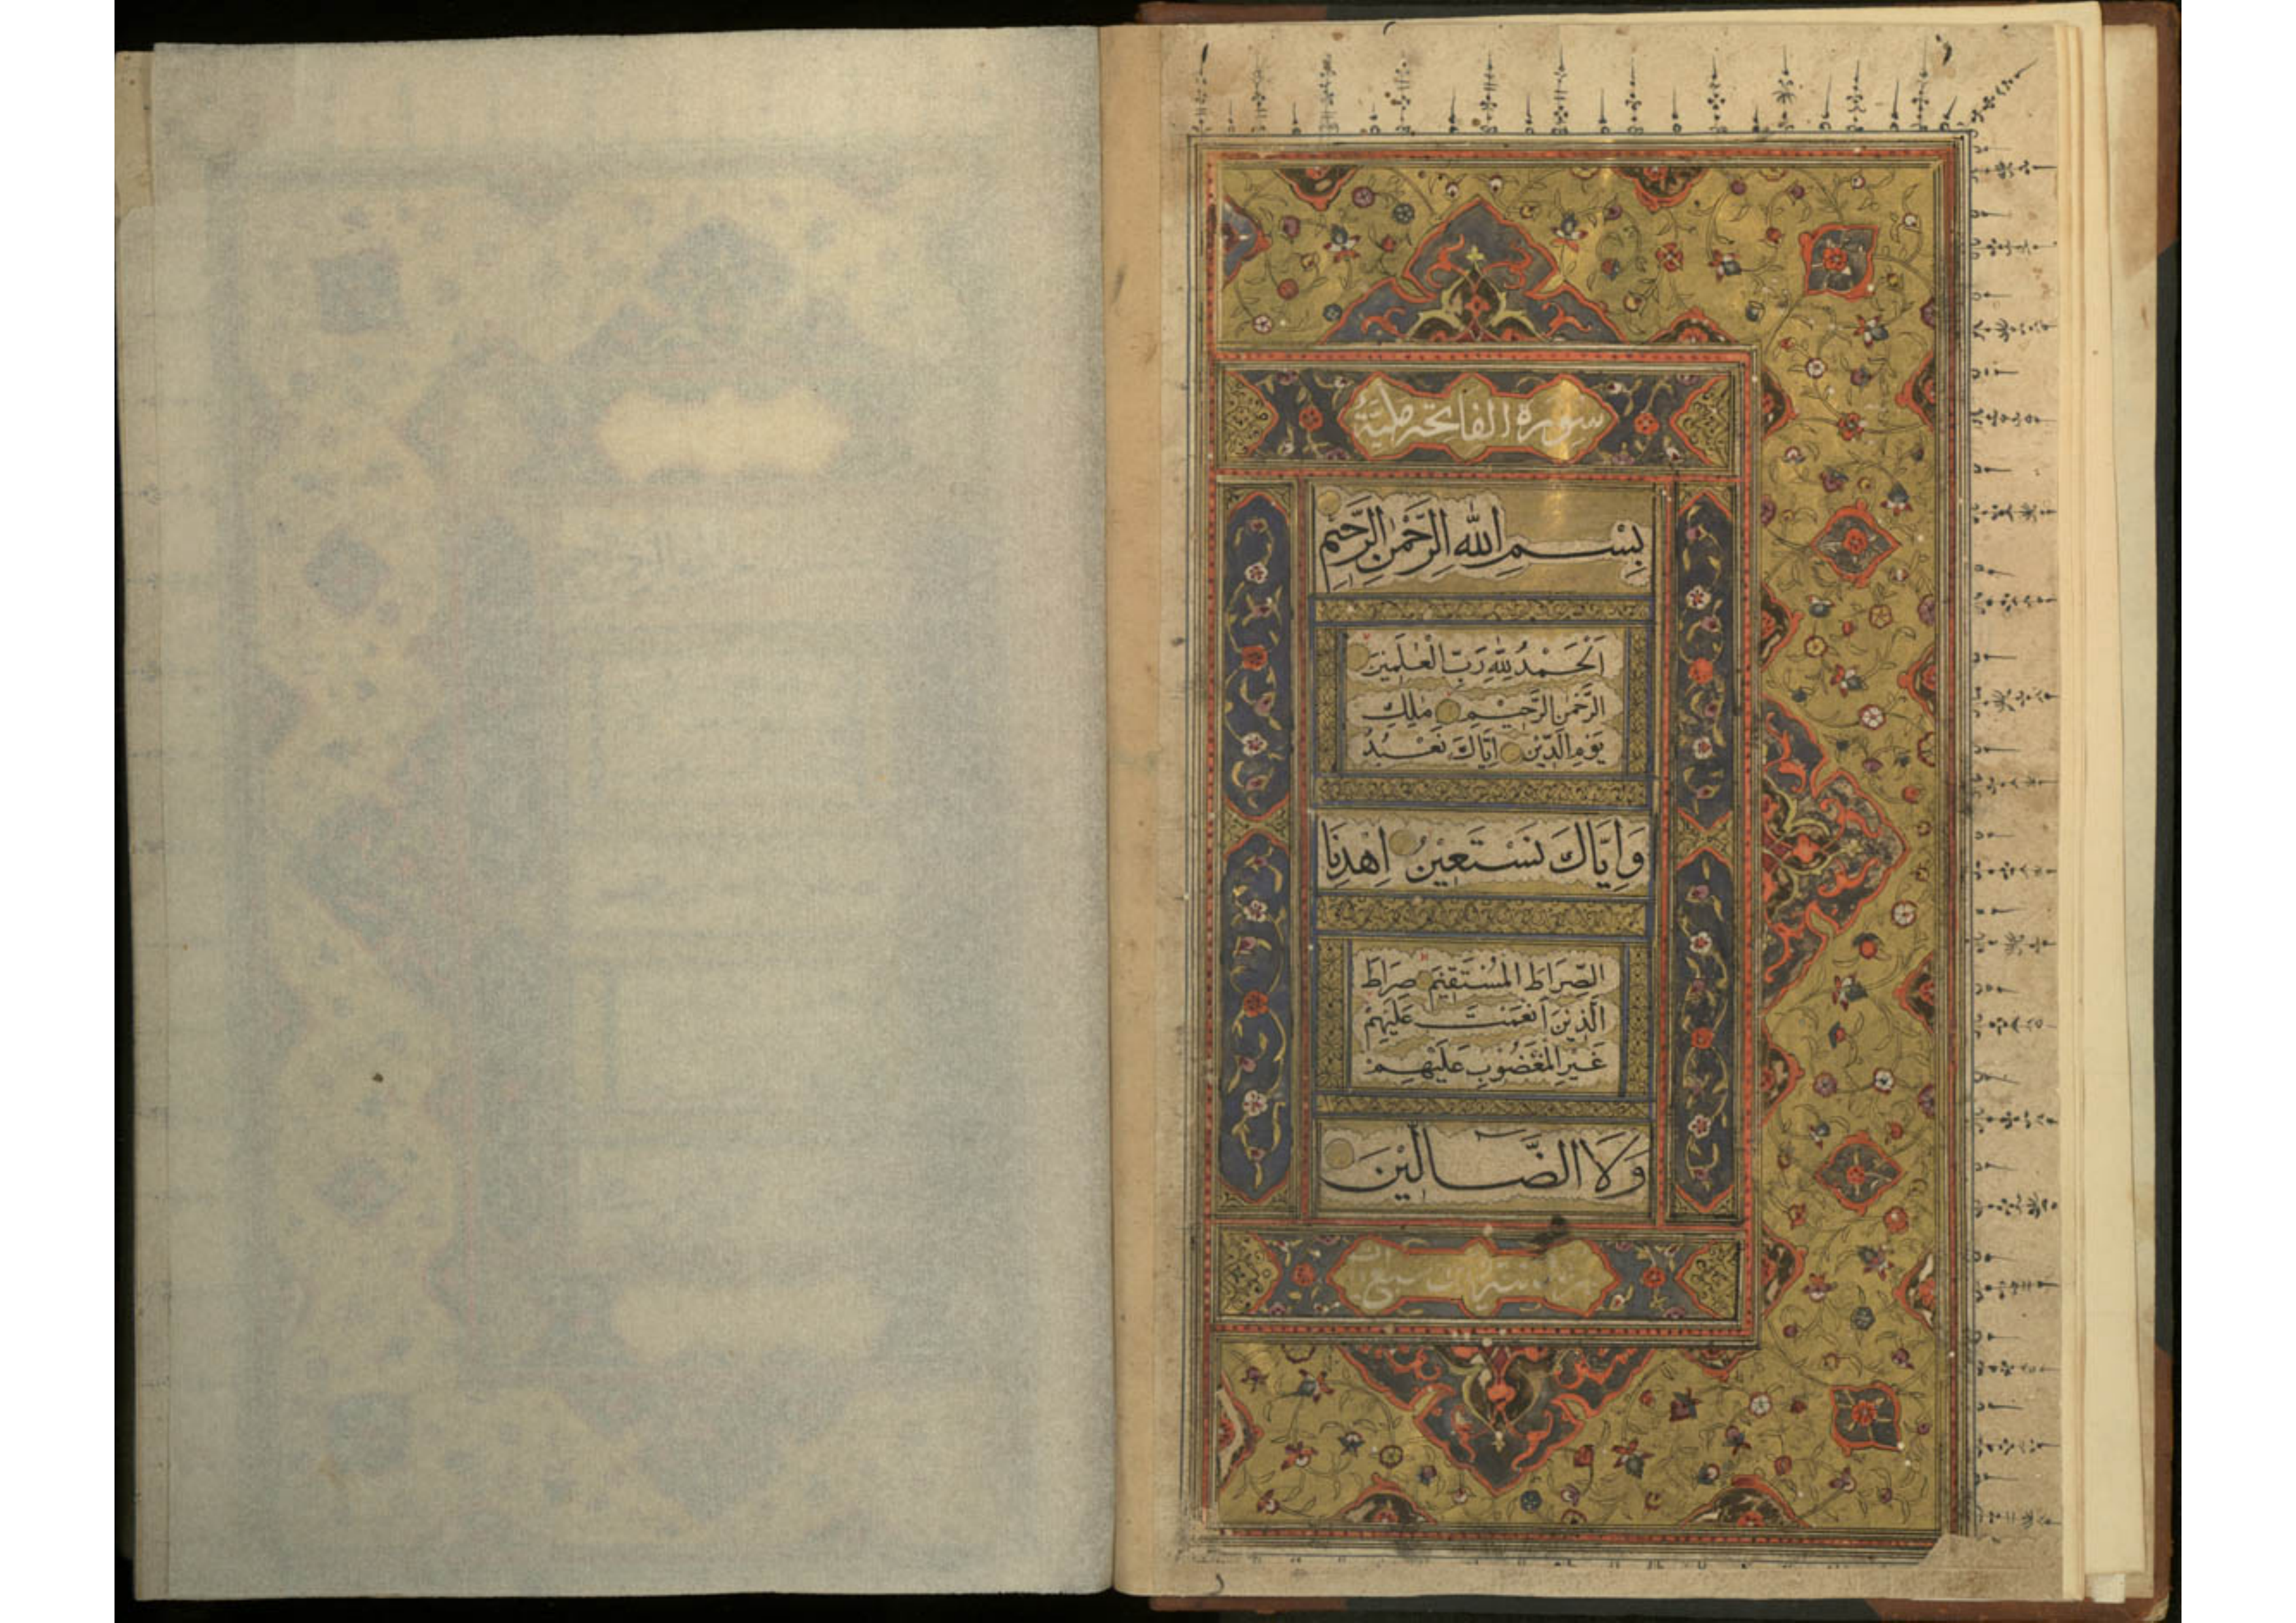 سورة الفاتحة
بِسْمِ اللّٰهِ الرَّحْمٰنِ الرَّحِيْمِ
اَلْحَمْدُ لِلّٰهِ رَبِّ الْعٰلَمِيْنَ
الرَّحْمٰنِ الرَّحِيْمِ مٰلِكِ
يَوْمِ الدِّيْنِ اِيَّاكَ نَعْبُدُ
وَاِيَّاكَ نَسْتَعِيْنُ اِهْدِنَا
الصِّرَاطَ الْمُسْتَقِيْمَ صِرَاطَ
الَّذِيْنَ اَنْعَمْتَ عَلَيْهِمْ
غَيْرِ الْمَغْضُوْبِ عَلَيْهِمْ
وَلَا الضَّالِّيْنَ